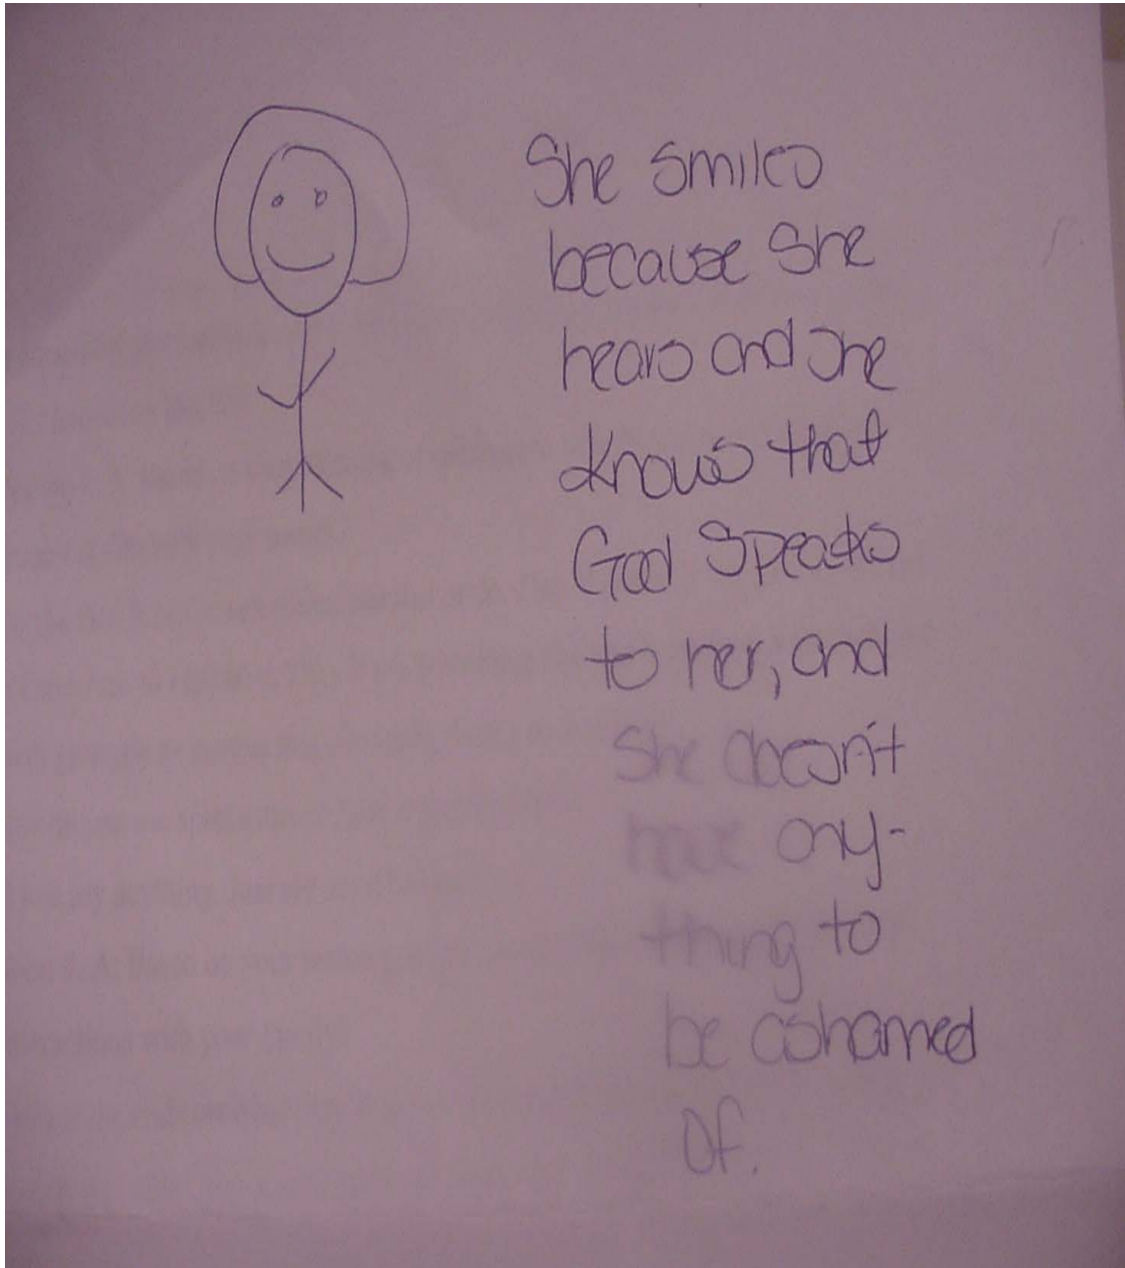 She smiles
because she
hears and she
knows that
God speaks
to her, and
She doesn't
have any-
thing to
be ashamed
of.